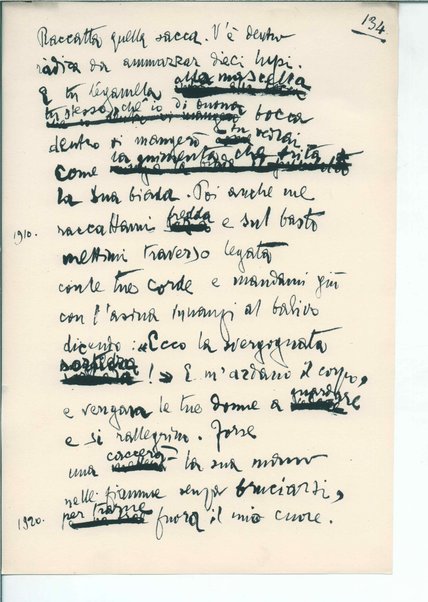 134
Raccatta quella sacca. V'è dentro
radica da ammazzar dieci lupi.
E tu legamela alla mascella
tu stesso, ch'io di buona bocca
dentro vi mangerò
come la giumenta che trita
la sua biada. Poi anche me
1910. raccattami fredda e sul basto
mettimi traverso legata
con le tue corde e mandami giù
con l'asina innanzi al balivo
dicendo: «Ecco la svergognata
!» E m'ardano il corpo,
e vengan le tue donne a guardare
e si rallegrino. Forse
una caccerà la sua mano
nelle fiamme senza bruciarsi,
1920. per trarne fuora il mio cuore.